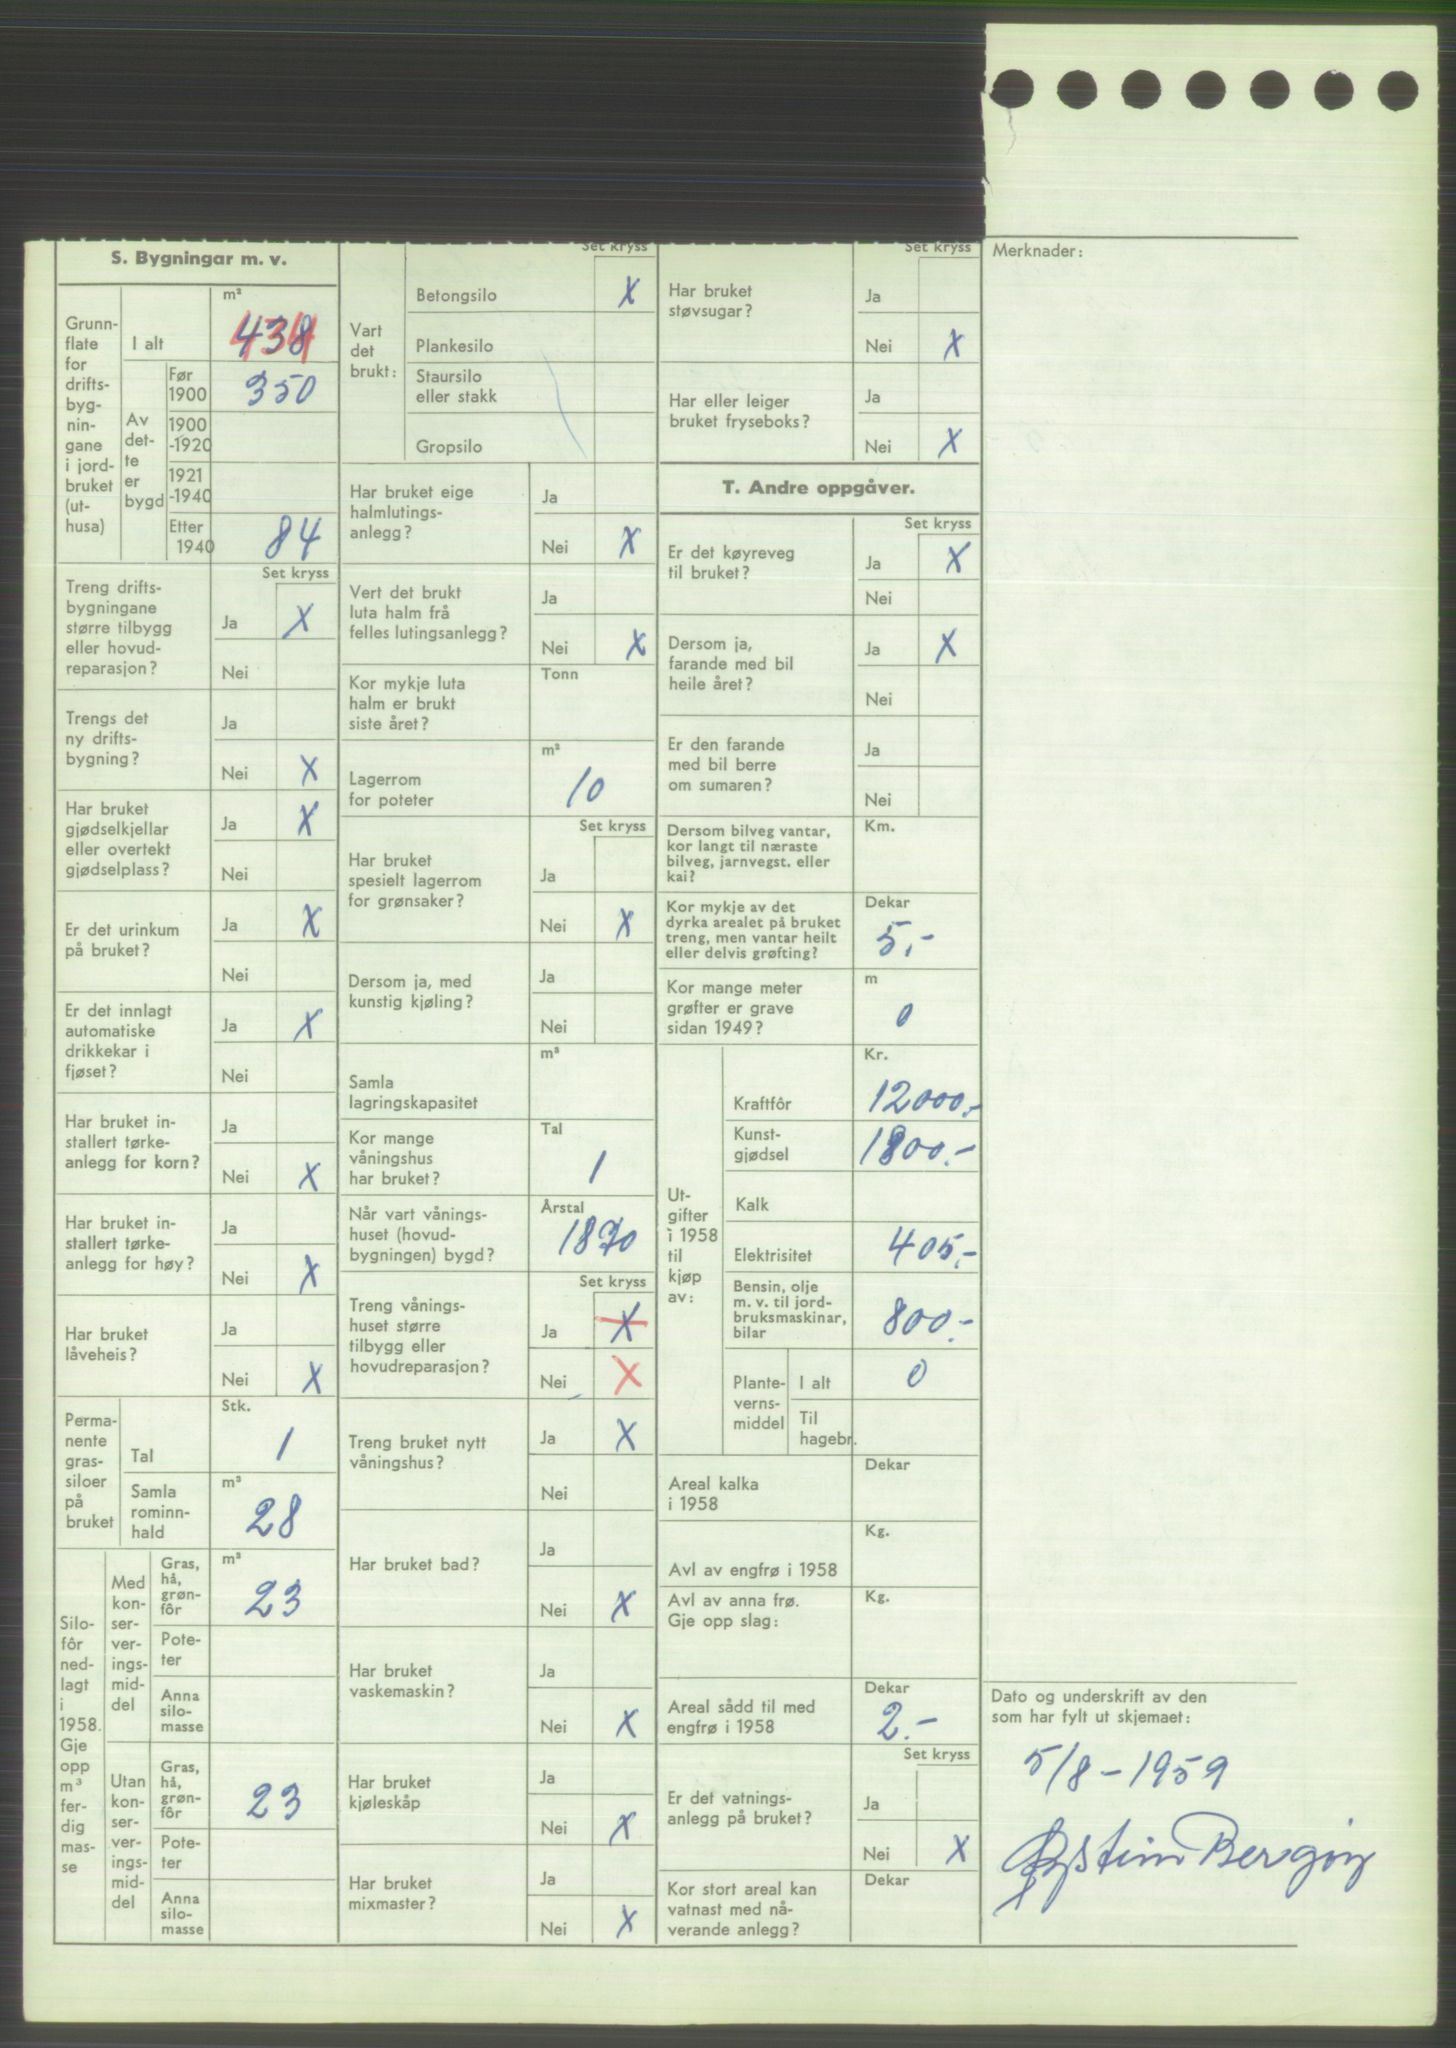 S. Bygningar m. v.
Grunn-
flate
for
drifts-
byg-
nin-
gane
i jord-
bruket
(ut-
husa)
m²
I alt
438
Av
det-
te
er
bygd
Før
1900
350
1900
-1920
1921
-1940
Etter
1940
84
Set kryss
Treng drifts-
bygningane
større tilbygg
eller hovud-
reparasjon?
Ja X
Nei
Trengs det
ny drifts-
bygning?
Ja
Nei X
Har bruket
gjødselkjellar
eller overtekt
gjødselplass?
Ja X
Nei
Er det urinkum
på bruket?
Ja X
Nei
Er det innlagt
automatiske
drikkekar i
fjøset?
Ja X
Nei
Har bruket in-
stallert tørke-
anlegg for korn?
Ja
Nei X
Har bruket in-
stallert tørke-
anlegg for høy?
Ja
Nei X
Har bruket
låveheis?
Ja
Nei X
Perma-
nente
gras-
siloer
på
bruket
Stk.
Tal
1
Samla
rominn-
hald
m³
28
Silo-
fôr
ned-
lagt
i
1958.
Gje
opp
m³
fer-
dig
mas-
se
Med
kon-
ser-
ver-
ings-
mid-
del
Gras,
hå,
grøn-
fôr
m³
23
Pote-
ter
Anna
silo-
masse
Utan
kon-
ser-
ver-
ings-
mid-
del
Gras,
hå,
grøn-
fôr
23
Pote-
ter
Anna
silo-
masse
Set kryss
Vart
det
brukt:
Betongsilo X
Plankesilo
Staursilo
eller stakk
Gropsilo
Har bruket eige
halmlutings-
anlegg?
Ja
Nei X
Vert det brukt
luta halm frå
felles lutingsanlegg?
Ja
Nei X
Kor mykje luta
halm er brukt
siste året?
Tonn
Lagerrom
for poteter
m³
10
Set kryss
Har bruket
spesielt lagerrom
for grønsaker?
Ja
Nei X
Dersom ja, med
kunstig kjøling?
Ja
Nei
Samla
lagringskapasitet
m³
Kor mange
våningshus
har bruket?
Tal
1
Når vart vånings-
huset (hovud-
bygningen) bygd?
Årstal
1870
Set kryss
Treng vånings-
huset større
tilbygg eller
hovudreparasjon?
Ja X
Nei X
Treng bruket nytt
våningshus?
Ja X
Nei
Har bruket bad?
Ja
Nei X
Har bruket
vaskemaskin?
Ja
Nei X
Har bruket
kjøleskåp
Ja
Nei X
Har bruket
mixmaster?
Ja
Nei X
Set kryss
Har bruket
støvsugar?
Ja
Nei X
Har eller leiger
bruket fryseboks?
Ja
Nei X
T. Andre oppgåver.
Set kryss
Er det køyreveg
til bruket?
Ja X
Nei
Dersom ja,
farande med bil
heile året?
Ja X
Nei
Er den farande
med bil berre
om sumaren?
Ja
Nei
Dersom bilveg vantar,
kor langt til næraste
bilveg, jarnvegst. eller
kai?
Km.
Kor mykje av det
dyrka arealet på bruket
treng, men vantar heilt
eller delvis grøfting?
Dekar
5,-
Kor mange meter
grøfter er grave
sidan 1949?
m
0
Ut-
gifter
i 1958
til
kjøp
av:
Kr.
Kraftfôr
12000,-
Kunst-
gjødsel
1800.-
Kalk
Elektrisitet
405,-
Bensin, olje
m. v. til jord-
bruksmaskinar,
bilar
800.-
Plante-
verns-
middel
I alt
0
Til
hagebr.
Areal kalka
i 1958
Dekar
Avl av engfrø i 1958
Kg.
Avl av anna frø.
Gje opp slag:
Kg.
Areal sådd til med
engfrø i 1958
Dekar
2.-
Set kryss
Er det vatnings-
anlegg på bruket?
Ja
Nei X
Kor stort areal kan
vatnast med nå-
verande anlegg?
Dekar
Merknader:
Dato og underskrift av den
som har fylt ut skjemaet:
5/8-1959